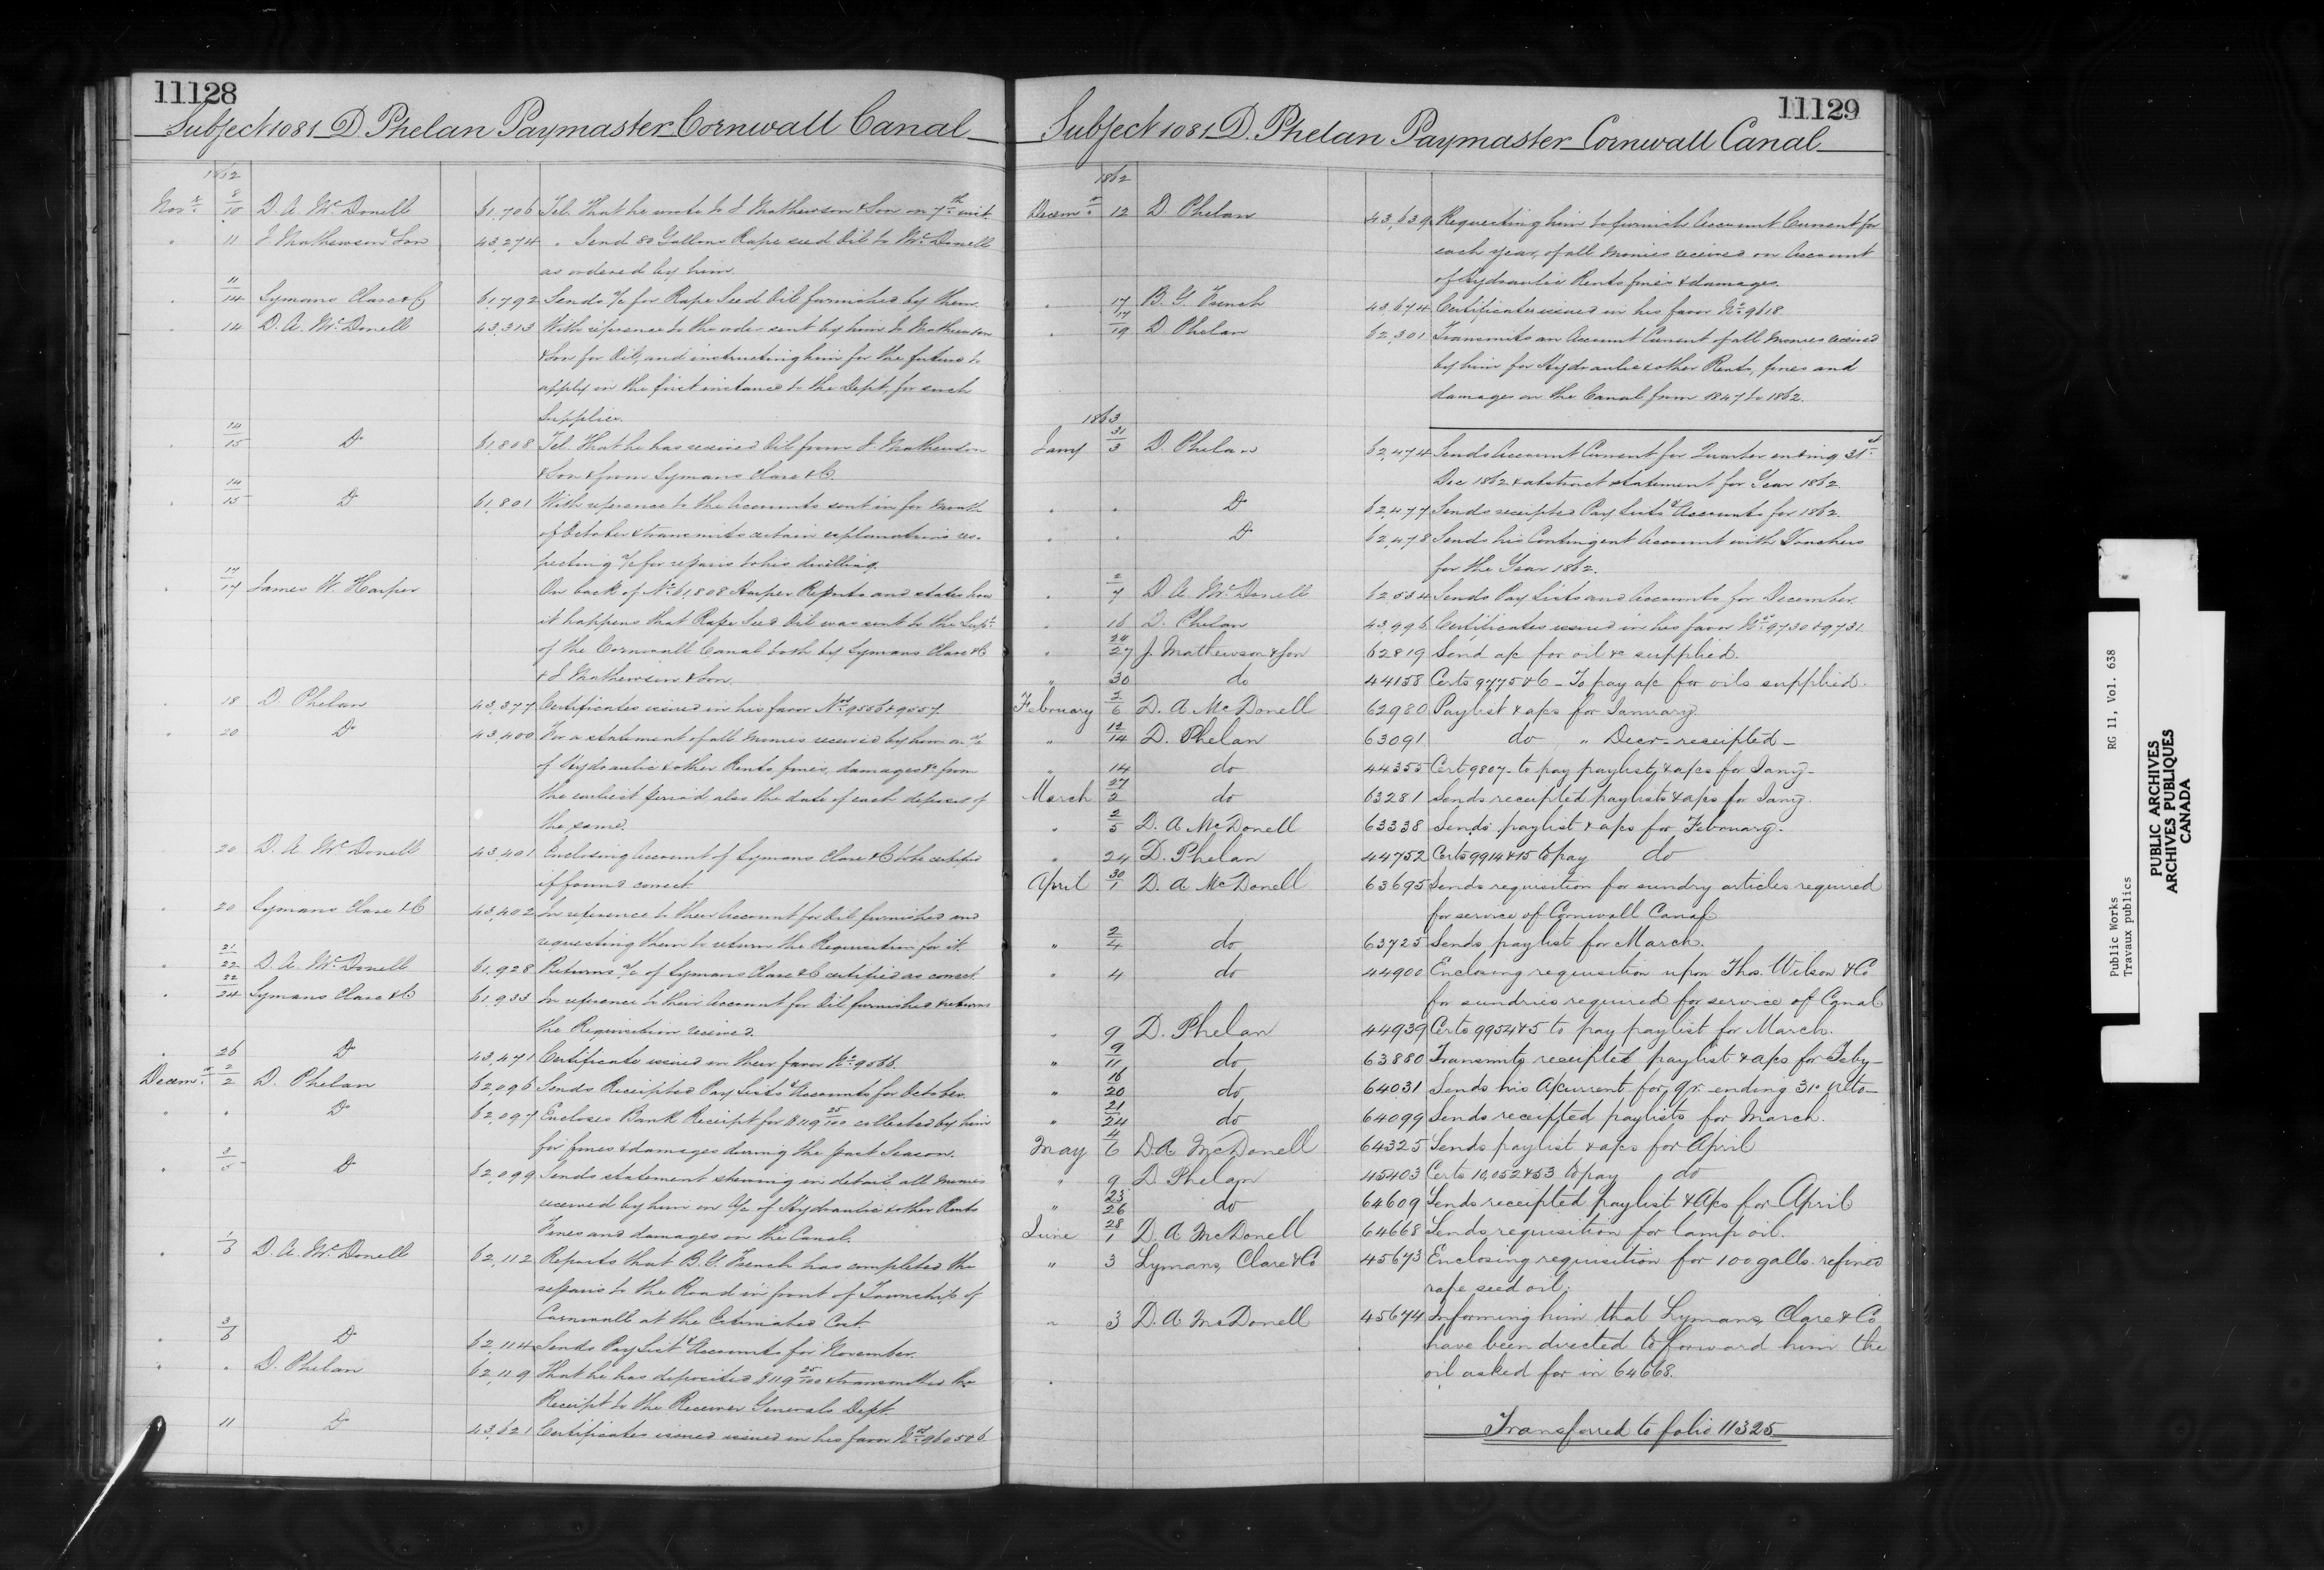 11128
Subject 1081 D. Phelan Paymaster Cornwall Canal
1862
Novr. 8/10 D. A. McDonell 61,706 Tel. That he wrote to J. Mathewson & Son on 7th inst.
" 11 J Mathewson & Son 43,274 " Send 80 Gallons Rape seed Oil to Mr. Donell
as ordered by him.
" 11/14 Lymans Clare & Co 61,792 Sends a/c for Rape Seed Oil furnished by them.
" 14 D. A. McDonell 43,313 With reference to the order sent by him to Mathewson
& Son for Oil, and instructing him for the future to
apply in the first instance to the Dept. for such
Supplies.
" 14/15 Do 61,808 Tel. That he has received Oil from J. Mathewson
& Son & from Lymans Clare & Co.
" 14/15 Do 61,801 With reference to the Accounts sent in for Month
of October & transmits certain explanations res-
pecting a/c for repairs to his dwelling.
" 17/17 James W. Harper On back of No. 61,808 Harper Reports and states how
it happens that Rape Seed Oil was sent to the Supt.
of the Cornwall Canal both by Lymans Clare & Co
& J Mathewson & Son.
" 18 D. Phelan 43,377 Certificates issued in his favor Nos. 9556 & 9557.
" 20 Do 43,400 For a statement of all Monies received by him on a/c
of Hydraulic & other Rents, fines, damages &c from
the earliest period, also the date of each deposit of
the same.
20 D. A. McDonell 43,401 Enclosing Account of Lymans Clare & Co to be certified
if found correct.
" 20 Lymans Clare & Co 43,402 In reference to their Account for Oil furnished and
requesting them to return the Requisition for it.
" 21/22 D. A. McDonell 61,928 Returns a/c of Lymans Clare & Co certified as correct.
" 22/24 Lymans Clare & Co 61,933 In reference to their Account for Oil furnished & return
the Requisition received.
" 26 Do 43,471 Certificate issued in their favor No. 9066.
Decemr. 2/2 D. Phelan 62,096 Sends Receipted Pay Lists & Accounts for October.
" " Do 62,097 Encloses Bank Receipt for $119 25/100 collected by him
for fines & damages during the past Season.
" 3/5 Do 62,099 Sends statement shewing in detail all Monies
received by him on A/c of Hydraulic & other Rents
Fines and damages on the Canal.
" 1/5 D. A. McDonell 62,112 Reports that B. G. French has completed the
repairs to the Road in front of Township of
Cornwall at the Estimated Cost.
" 3/6 Do 62,114 Sends Pay List & Accounts for November.
" " D. Phelan 62,119 That he has deposited $119 25/100 & transmitted the
Receipt to the Receiver Generals Dept.
11 Do 43,621 Certificates issued issued in his favor Nos. 9605 & 6
11129
Subject 1081 D. Phelan Paymaster Cornwall Canal
1862
Decemr. 12 D. Phelan 43,639 Requesting him to furnish Account Current for
each year, of all monies received on Account
of Hydraulic Rents fines & damages.
" 17 B. G. French 43,674 Certificate issued in his favor No. 9618
" 17/19 D. Phelan 62,301 Transmits an Account Current of all Monies received
by him for Hydraulic & other Rents, fines and
damages on the Canal from 1847 to 1862.
1863
Jany 31/3 D. Phelan 62,474 Sends Account Current for Quarter ending 31st
Dec 1862 & abstract statement for Year 1862.
" " Do 62,477 Sends receipted Pay Lists & Accounts for 1862.
" " Do 62,478 Sends his Contingent Account with Vouchers
for the Year 1862.
" 2/7 D. A. McDonell 62,534 Sends Pay Lists and Accounts for December.
" 16 D. Phelan 43,996 Certificates issued in his favor Nos. 9730 & 9731.
" 24/27 J. Mathewson & Son 62819 Send a/c for oil &c supplied.
" 30 do 44158 Certs 9775 & 6 – To pay a/c for oils supplied.
February 2/6 D. A McDonell 62980 Paylist & a/cs for January.
" 12/14 D. Phelan 63091 do " Decr. receipted –
" 14 do 44355 Cert 9807 – to pay paylist & a/cs for Jany –
March 27/2 do 63281 Sends receipted paylists & a/cs for Jany.
" 2/5 D. A McDonell 63338 Sends paylist & a/cs for February.
" 24 D. Phelan 44752 Certs 9914 & 15 to pay do
April 30/1 D. A McDonell 63695 Sends requisition for sundry articles required
for service of Cornwall Canal
" 2/4 do 63725 Sends paylist for March.
" 4 do 44900 Enclosing requisition upon Thos. Wilson & Co
for sundries required for service of Canal
" 9 D. Phelan 44939 Certs 9954 & 5 to pay paylist for March.
" 9/11 do 63880 Transmits receipted paylist & a/cs for Feby –
" 16/20 do 64031 Sends his A/current for qr. ending 31st ulto –
" 21/24 do 64099 Sends receipted paylists for March.
May 4/6 D. A McDonell 64325 Sends paylist & a/cs for April
" 9 D Phelan 45403 Certs 10,052 & 53 to pay do
" 23/26 do 64609 Sends receipted paylist & A/cs for April
June 28/1 D. A McDonell 64668 Sends requisition for lamp oil.
" 3 Lymans, Clare & Co 45673 Enclosing requisition for 100 galls. refined
rape seed oil.
" 3 D. A McDonell 45674 Informing him that Lymans, Clare & Co
have been directed to forward him the
oil asked for in 64668.
Transferred to folio 11325
Public Works RG 11, Vol. 638
Travaux publics
PUBLIC ARCHIVES
ARCHIVES PUBLIQUES
CANADA